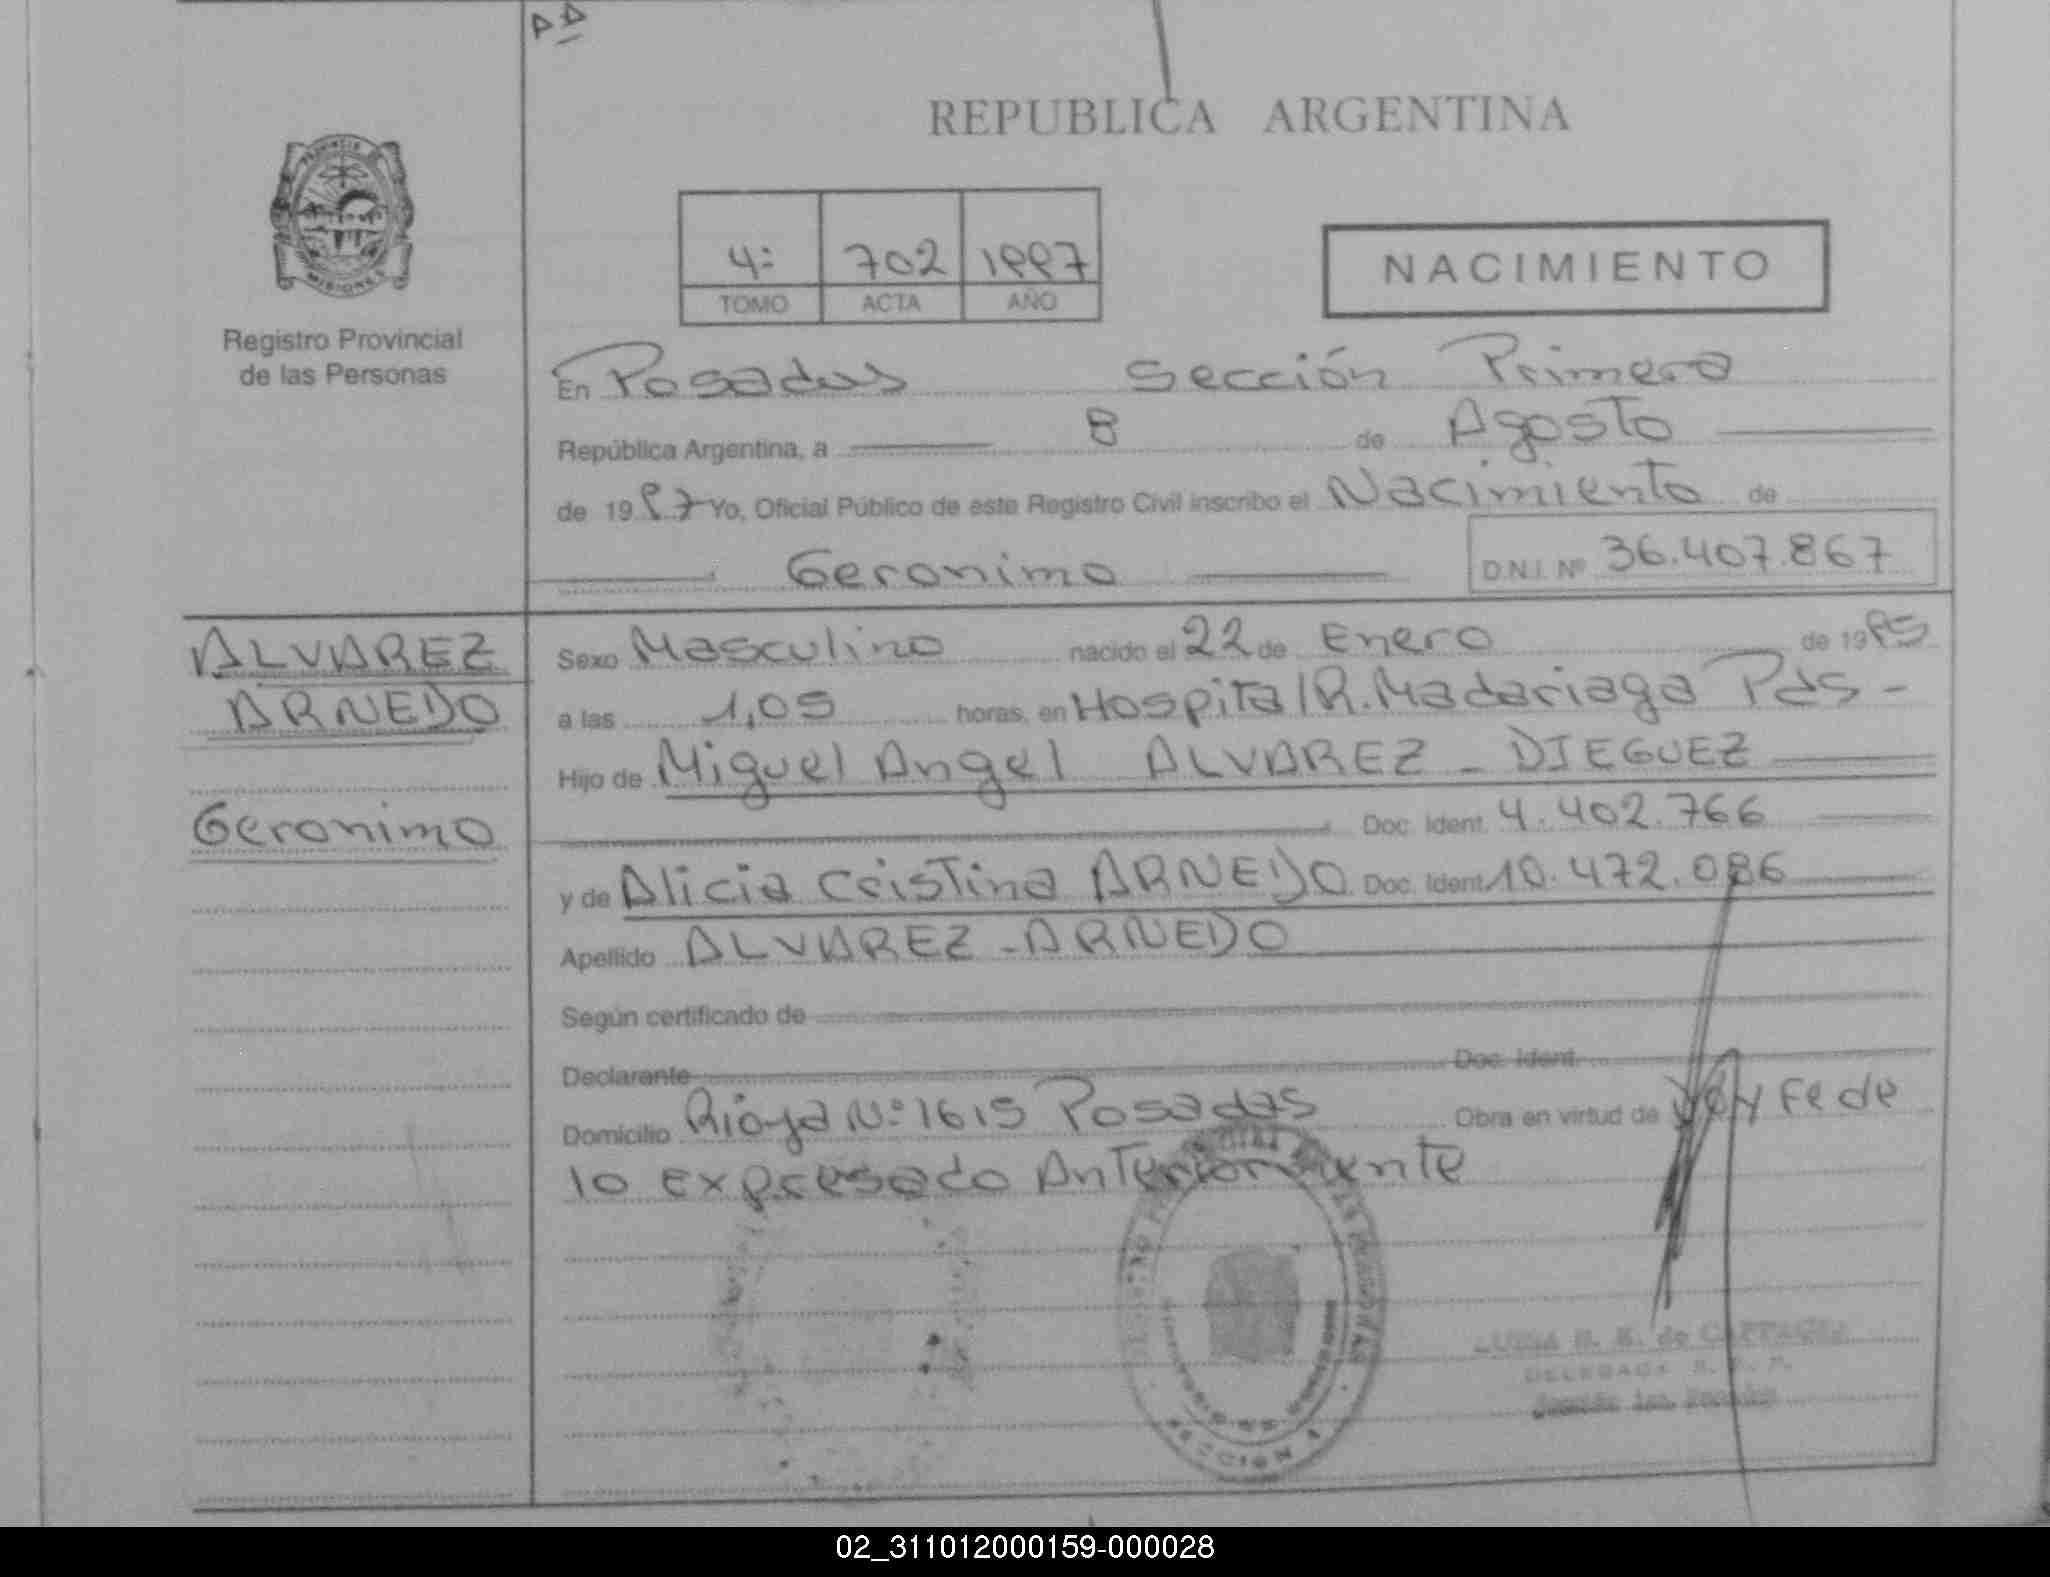 REPUBLICA ARGENTINA
PROVINCIA DE
MISIONES
Registro Provincial
de las Personas
4º 702 1997
TOMO ACTA AÑO
NACIMIENTO
En Posadas Sección Primera
República Argentina, a 8 de Agosto
de 1997 Yo, Oficial Público de este Registro Civil inscribo el Nacimiento de
Geronimo D.N.I. Nº 36.407.867
ALVAREZ
ARNEDO
Geronimo
Sexo Masculino nacido el 22 de Enero de 19
a las 1,05 horas, en Hospital R. Madariaga Pds -
Hijo de Miguel Angel ALVAREZ - DIEGUEZ
Doc. Ident. 4.402.766
y de Alicia Cristina ARNEDO Doc. Ident. 10.472.086
Apellido ALVAREZ - ARNEDO
Según certificado de
Declarante Doc. Ident.
Domicilio Rioja Nº 1615 Posadas Obra en virtud de Doy Fe de
lo expresado Anteriormente
LUISA de
DELEGADA
SECCION 1
02_311012000159-000028